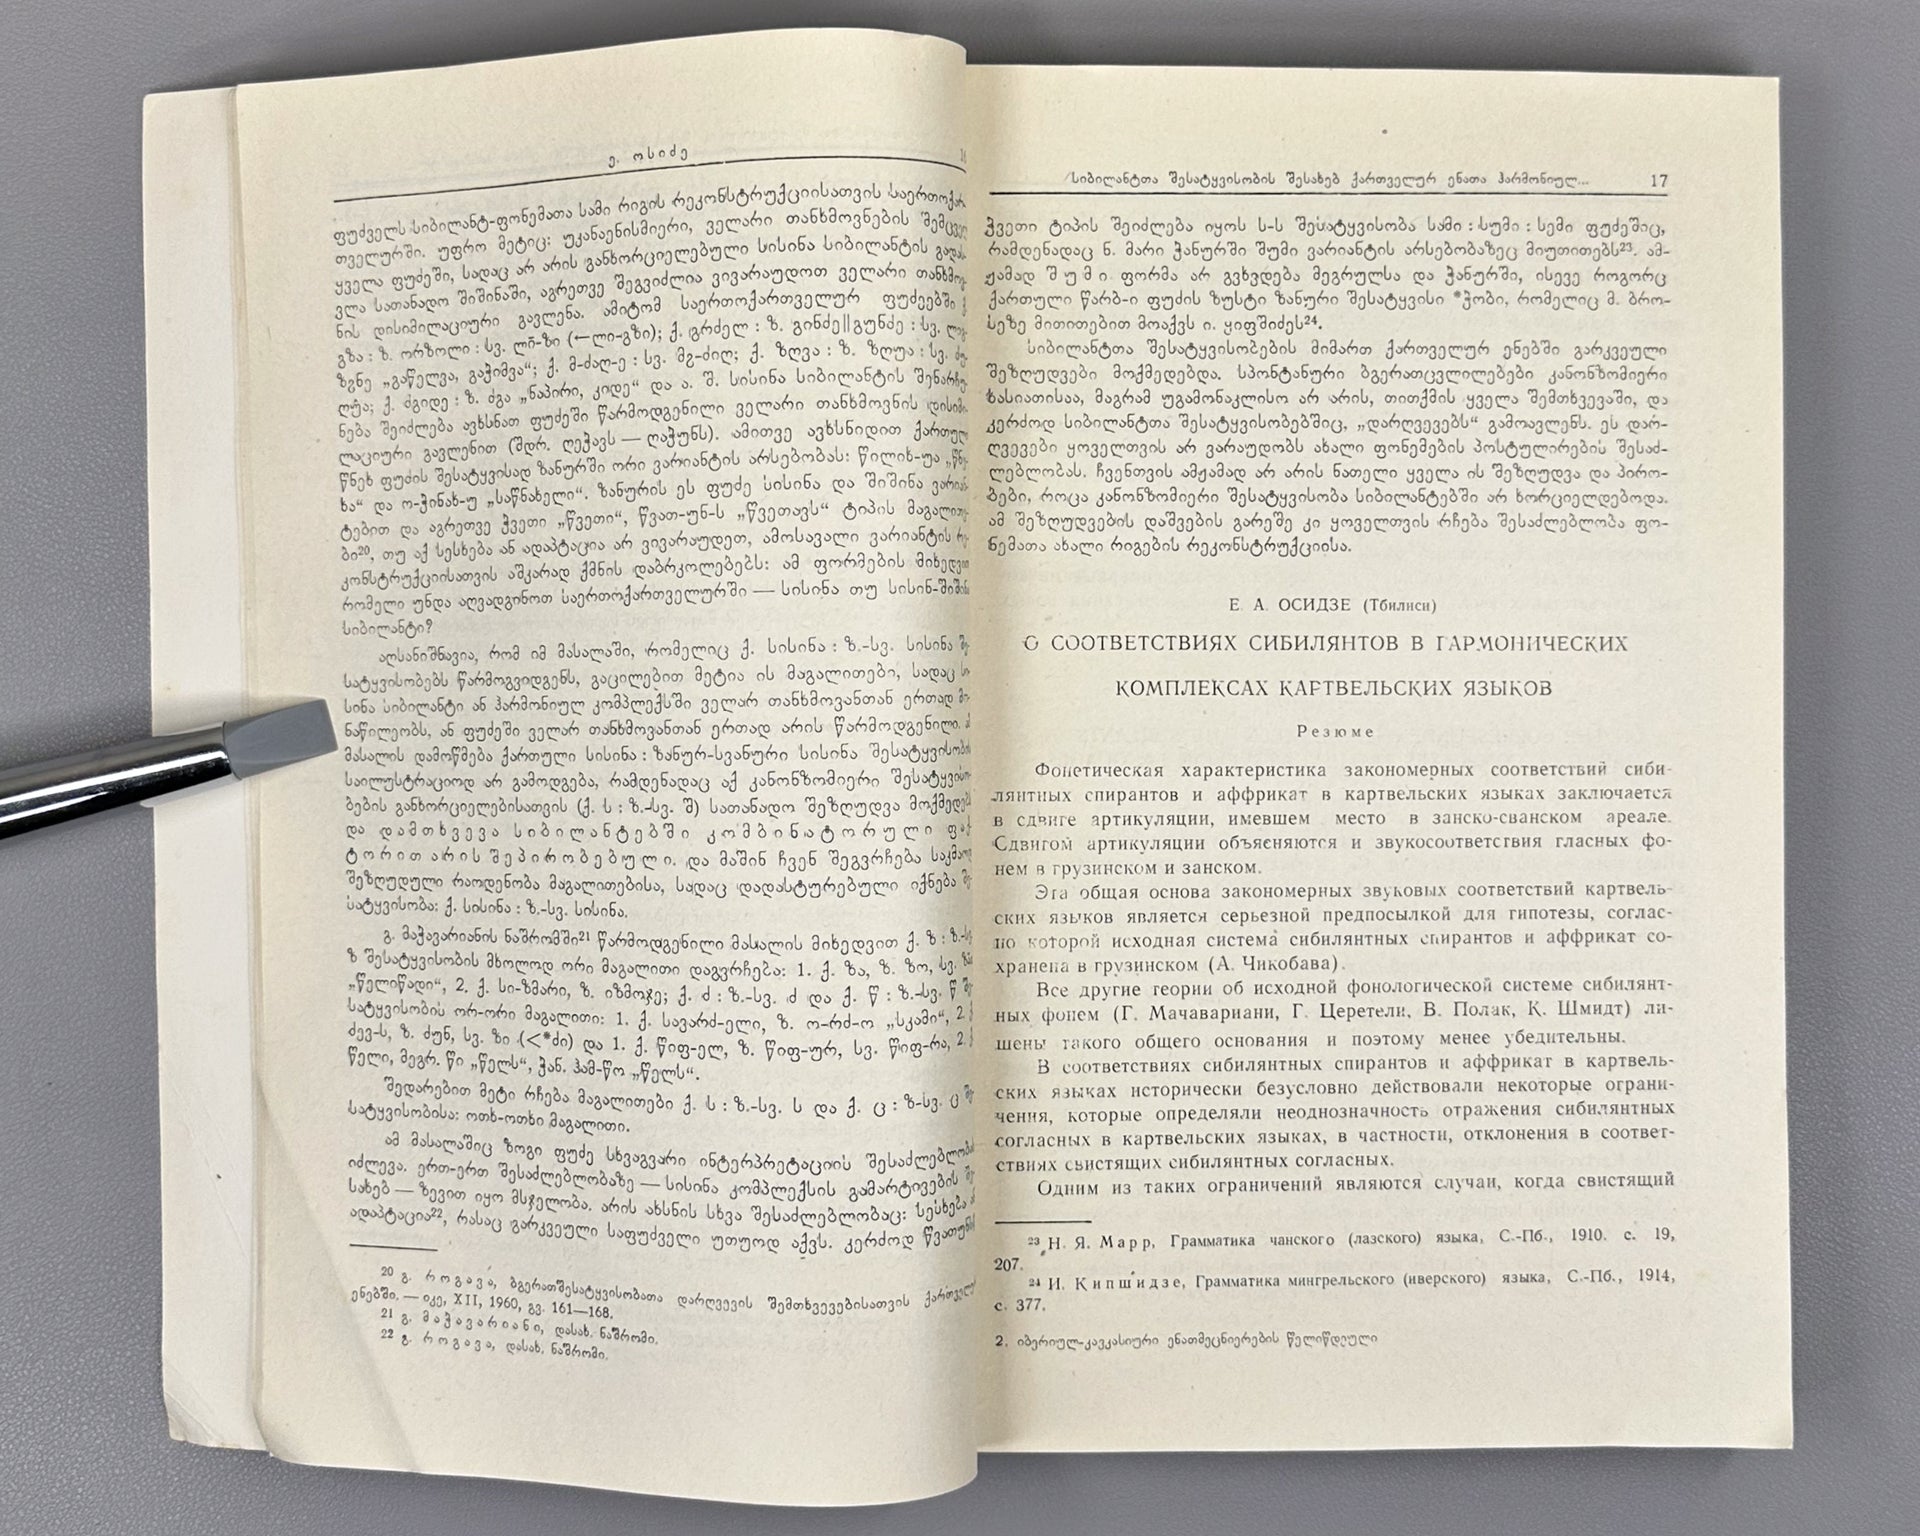 ე. ოსიძე
ფუძველს სიბილანტ-ფონემათა სამი რიგის რეკონსტრუქციისათვის საერთოქარ
თველურში. უფრო მეტიც: უკანაენისმიერი, ველარი თანხმოვნების შემცველ
ყველა ფუძეში, სადაც არ არის განხორციელებული სისინა სიბილანტის გადას
ვლა სათანადო შიშინაში, აგრეთვე შეგვიძლია ვივარაუდოთ ველარი თანხმოვ
ნის დისიმილაციური გავლენა. ამიტომ საერთოქართველურ ფუძეებში
გზა : ზ. ორზოლი : სვ. ლჷ-ზი (←ლი-გზი); ქ. გრძელ : ზ. გინძე||გუნძე : სვ.
ზგნე „გაწელვა, გაჭიმვა“; ქ. მ-ძაღ-ე : სვ. მგ-ძიღ; ქ. ზღვა : ზ. ზღუა : სვ. ძუ
ღუა; ქ. ძგიდე : ზ. ძგა „ნაპირი, კიდე“ და ა. შ. სისინა სიბილანტის შენარჩუ
ნება შეიძლება ავხსნათ ფუძეში წარმოდგენილი ველარი თანხმოვნის დისიმი
ლაციური გავლენით (შდრ. ღეჭავს — ღაჭუნს). ამითვე ავხსნიდით ქართულ
წნეხ ფუძის შესატყვისად ზანურში ორი ვარიანტის არსებობას: წილიხ-უა „წნე
ხა“ და ო-ჭინახ-უ „საწნახელი“. ზანურის ეს ფუძე სისინა და შიშინა ვარიან
ტებით და აგრეთვე ჭვეთი „წვეთი“, წვათ-უნ-ს „წვეთავს“ ტიპის მაგალითე
ბი²⁰, თუ აქ სესხება ან ადაპტაცია არ ვივარაუდეთ, ამოსავალი ვარიანტის რე
კონსტრუქციისათვის აშკარად ქმნის დაბრკოლებებს: ამ ფორმების მიხედვით
რომელი უნდა აღვადგინოთ საერთოქართველურში — სისინა თუ სისინ-შიშინა
სიბილანტი?
აღსანიშნავია, რომ იმ მასალაში, რომელიც ქ. სისინა : ზ.-სვ. სისინა შე
სატყვისობებს წარმოგვიდგენს, გაცილებით მეტია ის მაგალითები, სადაც სი
სინა სიბილანტი ან ჰარმონიულ კომპლექსში ველარ თანხმოვანთან ერთად მო
ნაწილეობს, ან ფუძეში ველარ თანხმოვანთან ერთად არის წარმოდგენილი. ამ
მასალის დამოწმება ქართული სისინა : ზანურ-სვანური სისინა შესატყვისობის
საილუსტრაციოდ არ გამოდგება, რამდენადაც აქ კანონზომიერი შესატყვისო
ბების განხორციელებისათვის (ქ. ს : ზ.-სვ. შ) სათანადო შეზღუდვა მოქმედებს
და დამთხვევა სიბილანტებში კომბინატორული ფაქ
ტორით არის შეპირობებული. და მაშინ ჩვენ შეგვრჩება საკმაოდ
შეზღუდული რაოდენობა მაგალითებისა, სადაც დადასტურებული იქნება შე
სატყვისობა: ქ. სისინა : ზ.-სვ. სისინა.
გ. მაჭავარიანის ნაშრომში²¹ წარმოდგენილი მასალის მიხედვით ქ. ზ : ზ.-სვ.
ზ შესატყვისობის მხოლოდ ორი მაგალითი დაგვრჩება: 1. ქ. ზა, ზ. ზო, სვ.
„წელიწადი“, 2. ქ. სი-ზმარი, ზ. იზმოჯე; ქ. ძ : ზ.-სვ. ძ და ქ. წ : ზ.-სვ. წ შე
სატყვისობის ორ-ორი მაგალითი: 1. ქ. სავარძ-ელი, ზ. ო-რძ-ო „სკამი“, 2. ქ.
ძევ-ს, ზ. ძუნ, სვ. ზი (<*ძი) და 1. ქ. წიფ-ელ, ზ. წიფ-ურ, სვ. წიფ-რა, 2. ქ.
წელი, მეგრ. წი „წელს“, ჭან. ჰამ-წო „წელს“.
შედარებით მეტი რჩება მაგალითები ქ. ს : ზ.-სვ. ს და ქ. ც : ზ-სვ. ც შე
სატყვისობისა: ოთხ-ოთხი მაგალითი.
ამ მასალაშიც ზოგი ფუძე სხვაგვარი ინტერპრეტაციის შესაძლებლობას
იძლევა. ერთ-ერთ შესაძლებლობაზე — სისინა კომპლექსის გამარტივების შე
სახებ — ზევით იყო მსჯელობა. არის ახსნის სხვა შესაძლებლობაც: სესხება ან
ადაპტაცია²², რასაც გარკვეული საფუძველი უთუოდ აქვს. კერძოდ წვათუნს
²⁰ გ. როგავა, ბგერათშესატყვისობათა დარღვევის შემთხვევებისათვის ქართველურ
ენებში. — იკე, XII, 1960, გვ. 161—168.
²¹ გ. მაჭავარიანი, დასახ. ნაშრომი.
²² გ. როგავა, დასახ. ნაშრომი.
სიბილანტთა შესატყვისობის შესახებ ქართველურ ენათა ჰარმონიულ... 17
ჭვეთი ტიპის შეიძლება იყოს ს-ს შესატყვისობა სამი : სუმი : სემი ფუძეშიც,
რამდენადაც ნ. მარი ჭანურში შუმი ვარიანტის არსებობაზეც მიუთითებს²³. ამ-
ჟამად შუმი ფორმა არ გვხვდება მეგრულსა და ჭანურში, ისევე როგორც
ქართული წარბ-ი ფუძის ზუსტი ზანური შესატყვისი *ჭობი, რომელიც მ. ბრო-
სეზე მითითებით მოაქვს ი. ყიფშიძეს²⁴.
სიბილანტთა შესატყვისობების მიმართ ქართველურ ენებში გარკვეული
შეზღუდვები მოქმედებდა. სპონტანური ბგერათცვლილებები კანონზომიერი
ხასიათისაა, მაგრამ უგამონაკლისო არ არის, თითქმის ყველა შემთხვევაში, და
კერძოდ სიბილანტთა შესატყვისობებშიც, „დარღვევებს“ გამოავლენს. ეს დარ-
ღვევები ყოველთვის არ ვარაუდობს ახალი ფონემების პოსტულირების შესაძ-
ლებლობას. ჩვენთვის ამჟამად არ არის ნათელი ყველა ის შეზღუდვა და პირო-
ბები, როცა კანონზომიერი შესატყვისობა სიბილანტებში არ ხორციელდებოდა.
ამ შეზღუდვების დაშვების გარეშე კი ყოველთვის რჩება შესაძლებლობა ფო-
ნემათა ახალი რიგების რეკონსტრუქციისა.
Е. А. ОСИДЗЕ (Тбилиси)
О СООТВЕТСТВИЯХ СИБИЛЯНТОВ В ГАРМОНИЧЕСКИХ
КОМПЛЕКСАХ КАРТВЕЛЬСКИХ ЯЗЫКОВ
Резюме
Фонетическая характеристика закономерных соответствий сиби-
лянтных спирантов и аффрикат в картвельских языках заключается
в сдвиге артикуляции, имевшем место в занско-сванском ареале.
Сдвигом артикуляции объясняются и звукосоответствия гласных фо-
нем в грузинском и занском.
Эта общая основа закономерных звуковых соответствий картвель-
ских языков является серьезной предпосылкой для гипотезы, соглас-
но которой исходная система сибилянтных спирантов и аффрикат со-
хранена в грузинском (А. Чикобава).
Все другие теории об исходной фонологической системе сибилянт-
ных фонем (Г. Мачавариани, Г. Церетели, В. Полак, К. Шмидт) ли-
шены такого общего основания и поэтому менее убедительны.
В соответствиях сибилянтных спирантов и аффрикат в картвель-
ских языках исторически безусловно действовали некоторые ограни-
чения, которые определяли неоднозначность отражения сибилянтных
согласных в картвельских языках, в частности, отклонения в соответ-
ствиях свистящих сибилянтных согласных.
Одним из таких ограничений являются случаи, когда свистящий
²³ Н. Я. Марр, Грамматика чанского (лазского) языка, С.-Пб., 1910. с. 19,
207.
²⁴ И. Кипшидзе, Грамматика мингрельского (иверского) языка, С.-Пб., 1914,
с. 377.
2. იბერიულ-კავკასიური ენათმეცნიერების წელიწდეული